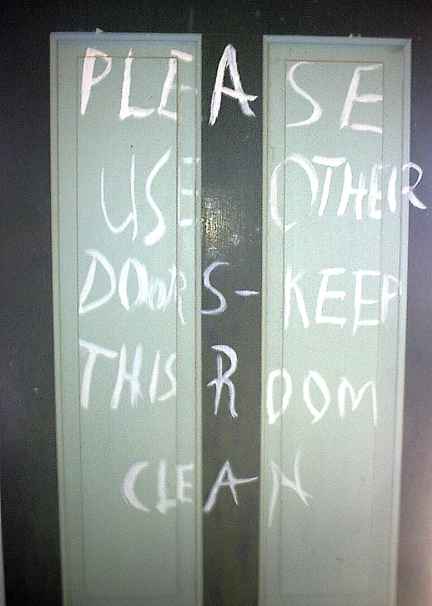 PLEASE
USE OTHER
DOORS- KEEP
THIS ROOM
CLEAN